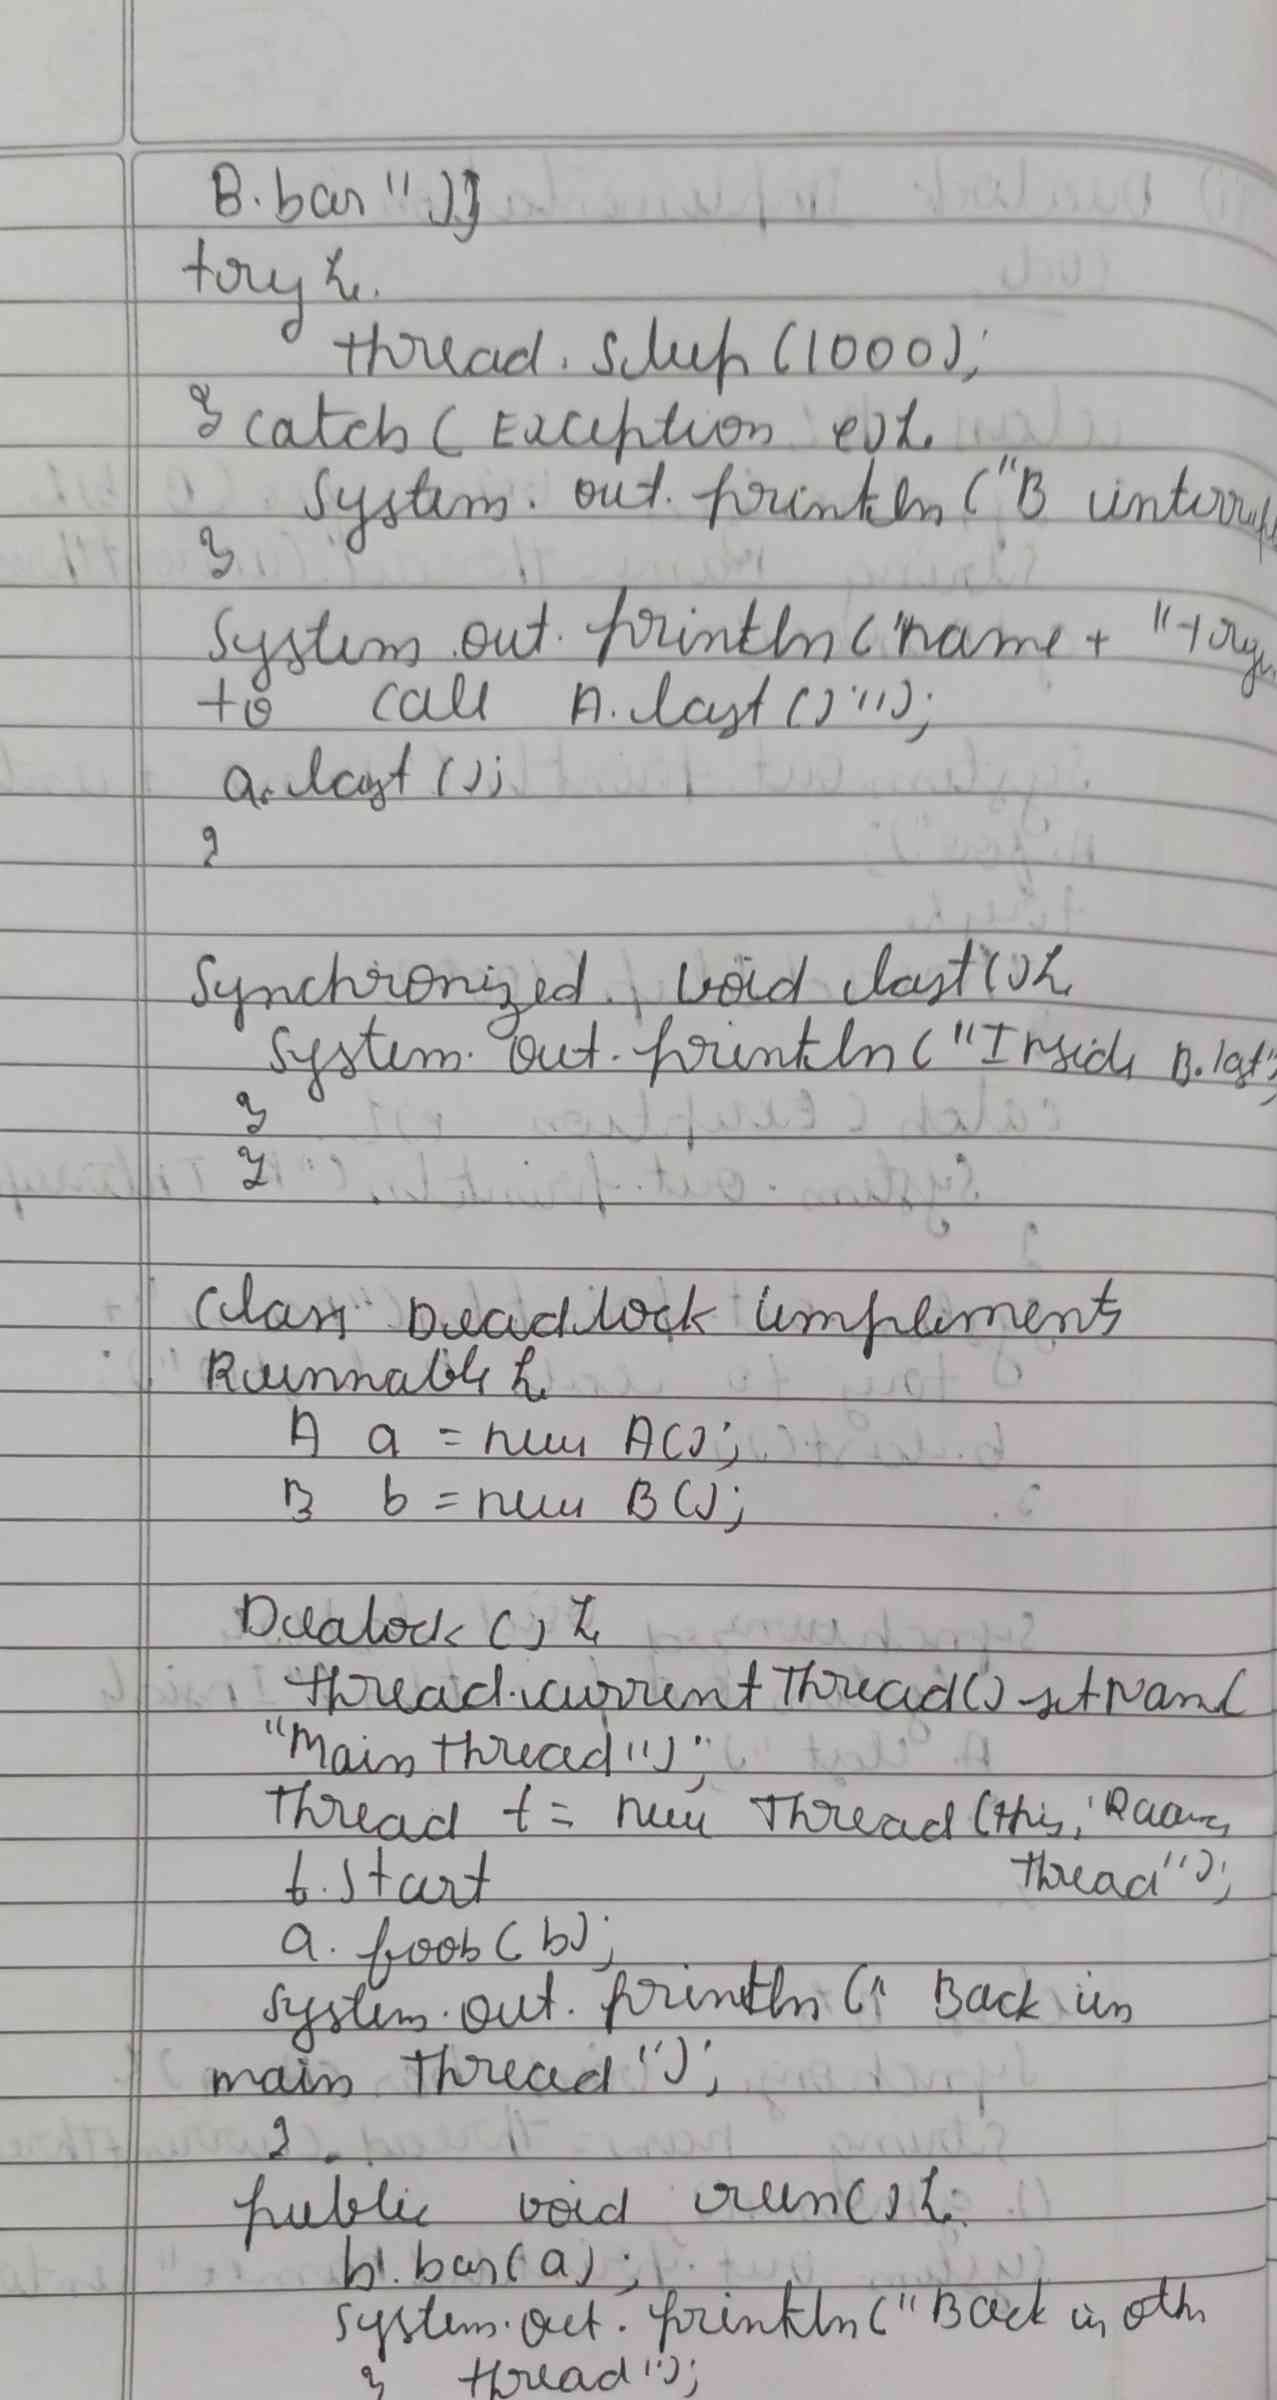 B.bar");
try {
thread. sleep (1000);
} catch ( Exception e) {
System. out. println ("B interrup
}
System. out. println ("name + "try
to call A. last ()");
a. last ();
}
Synchronized void last () {
System. out. println ("Inside B.last"
}
}
Class Deadlock implements
Runnable {
A a = new A();
B b = new B();
Dealock () {
thread.currentThread() setName(
"Main thread");
Thread t = new Thread (this,
thread");
t. start
a. foob( b);
System.out. println (" Back in
main thread");
}
public void run() {
b. bar( a) ;
System.out. println ("Back in oth
} thread");